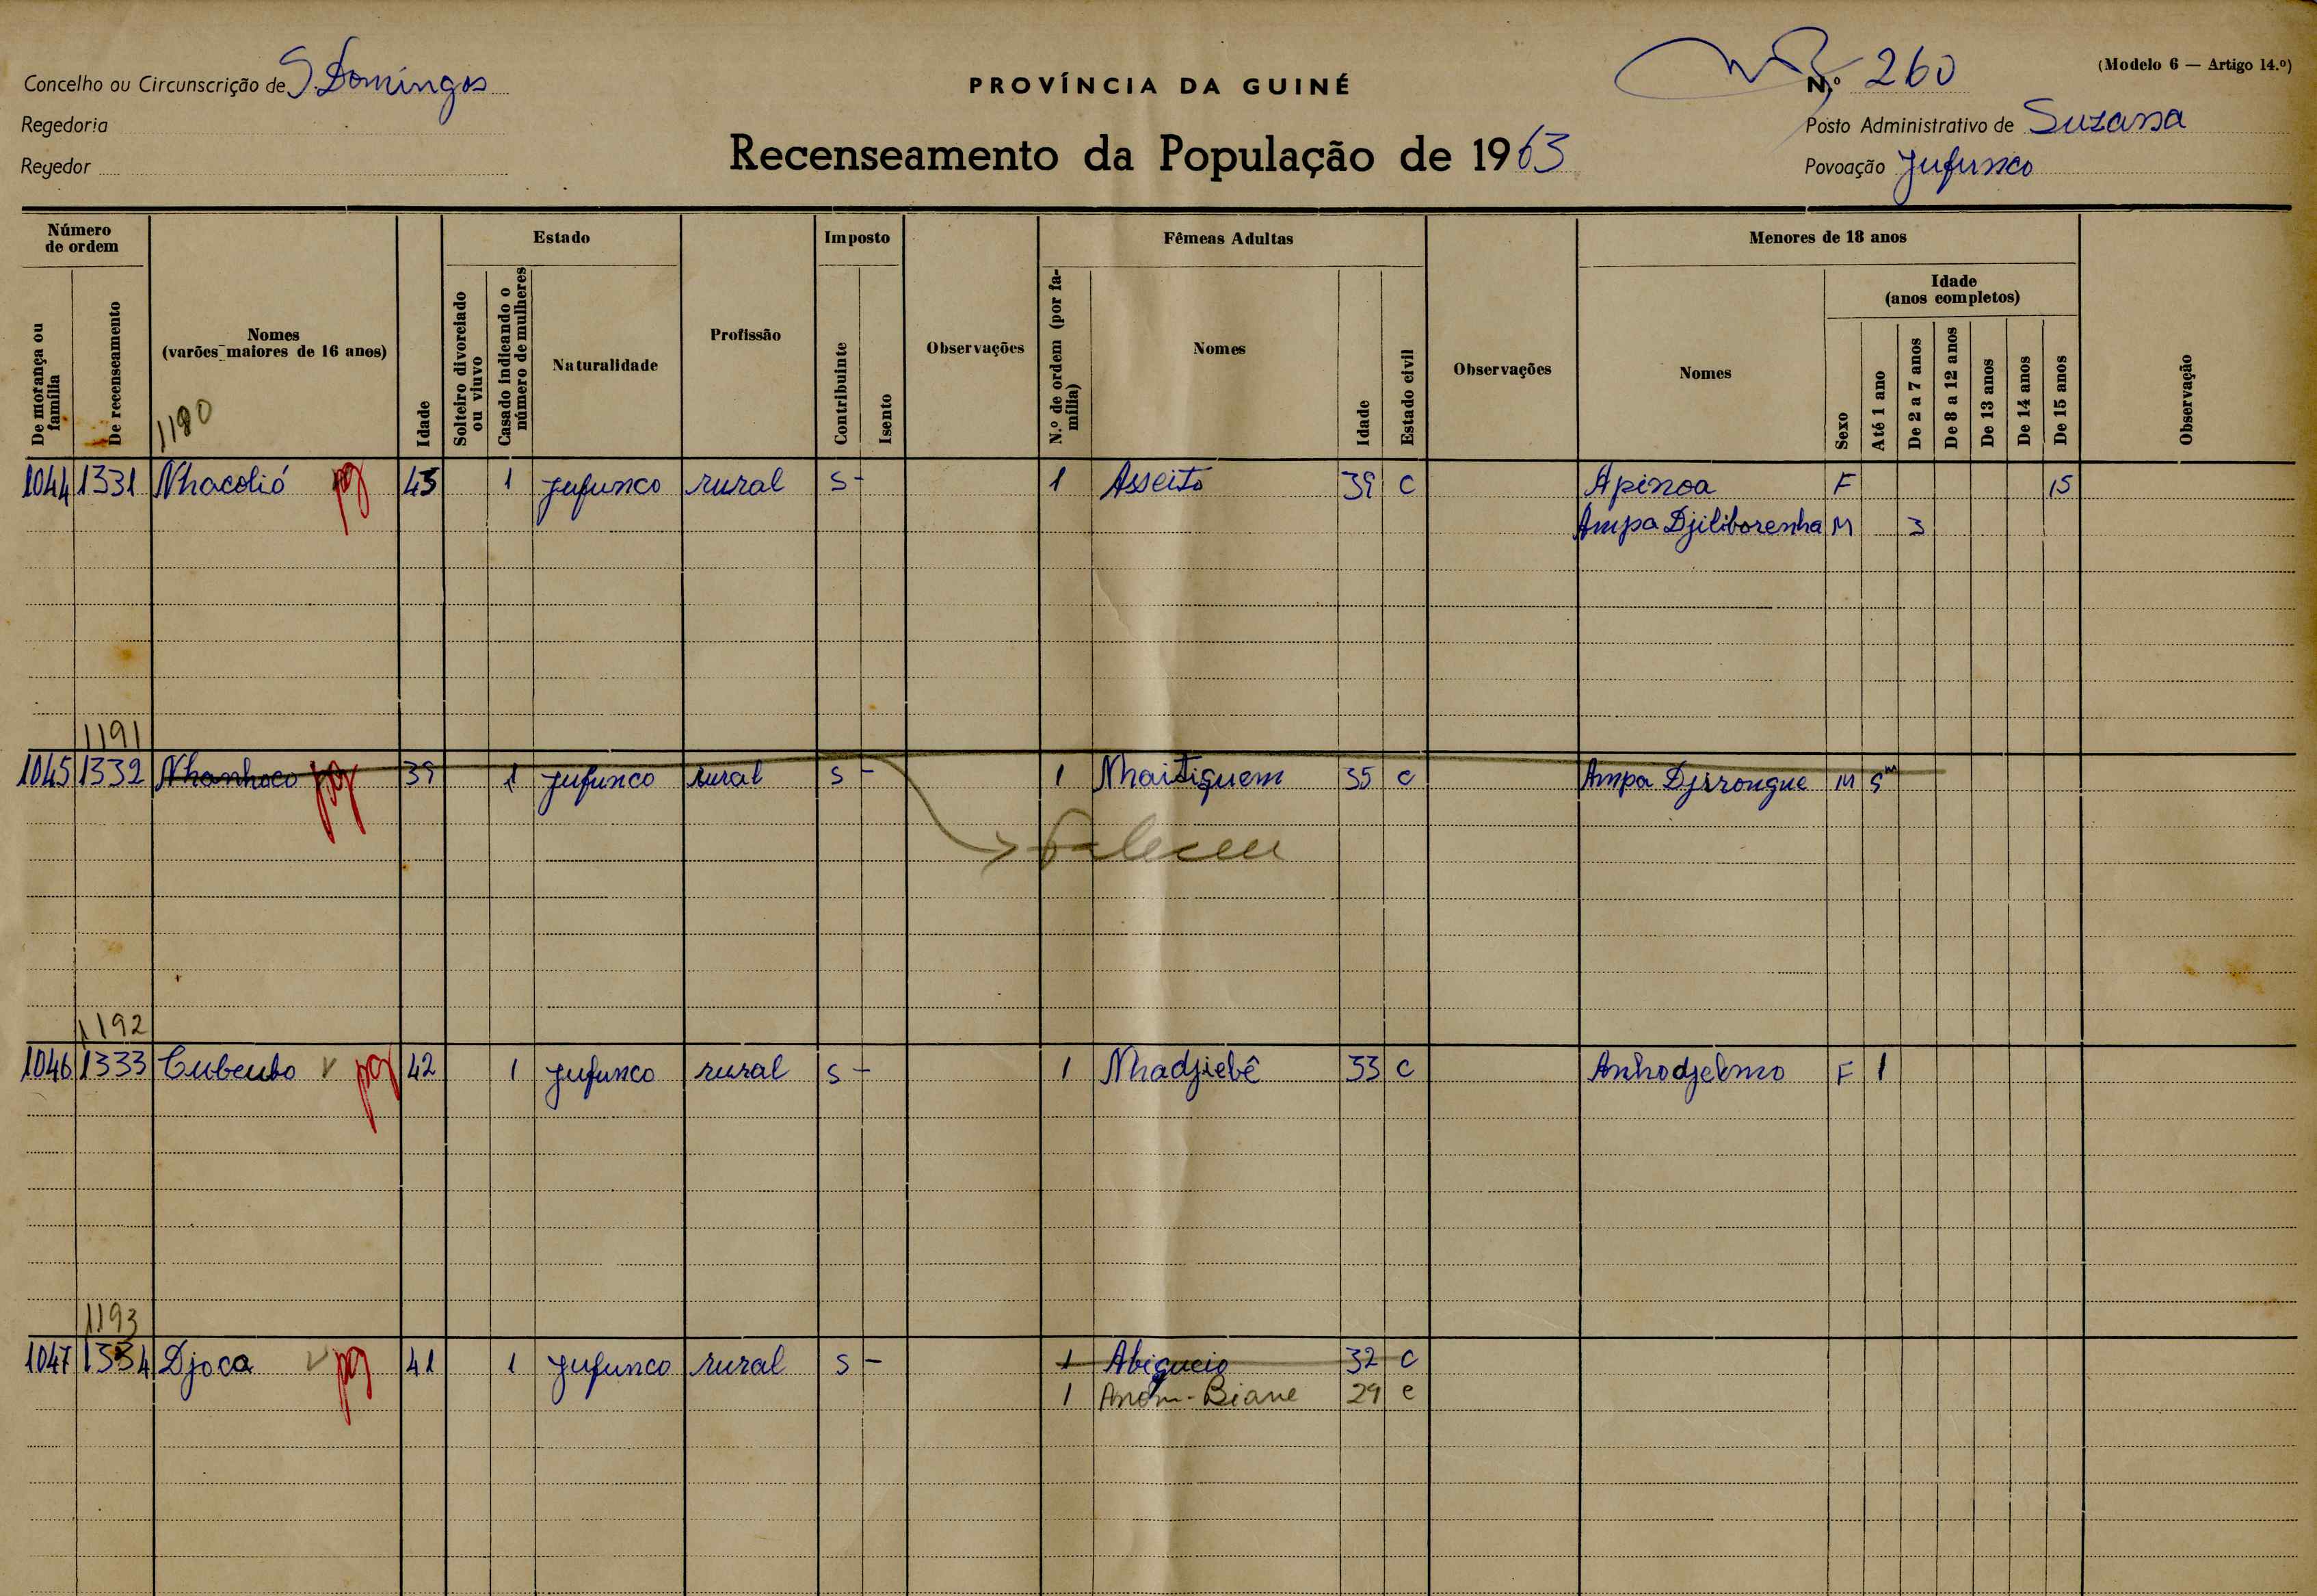 Concelho ou Circunscrição de S. Domingos
Regedoria
Regedor
PROVÍNCIA DA GUINÉ
Recenseamento da População de 1963
(Modelo 6 — Artigo 14.º)
N.º 260
Posto Administrativo de Suzana
Povoação Jufunco
Número de ordem
De morança ou família
De recenseamento
Nomes (varões maiores de 16 anos)
1190
Idade
Estado
Solteiro divorciado ou viuvo
Casado indicando o número de mulheres
Naturalidade
Profissão
Imposto
Contribuinte
Isento
Observações
Fêmeas Adultas
N.º de ordem (por família)
Nomes
Idade
Estado civil
Observações
Menores de 18 anos
Nomes
Sexo
Idade (anos completos)
Até 1 ano
De 2 a 7 anos
De 8 a 12 anos
De 13 anos
De 14 anos
De 15 anos
Observação
1044 1331 Nhacolió pg 43 1 Jufunco rural S - 1 Asseito 39 C Apinoa F 15
Ampa Djiliborenha M 3
1191
1045 1332 Nhanhoco pg 39 1 Jufunco rural S - 1 Nhaitiquem 35 C Ampa Djirongue M 5m
faleceu
1192
1046 1333 Cubenbo v pg 42 1 Jufunco rural S - 1 Nhadjiebê 33 C Anhodjelmo F 1
1193
1047 1334 Djoca v pg 41 1 Jufunco rural S - 1 Abigueio 32 C
1 Anom-Biane 29 C